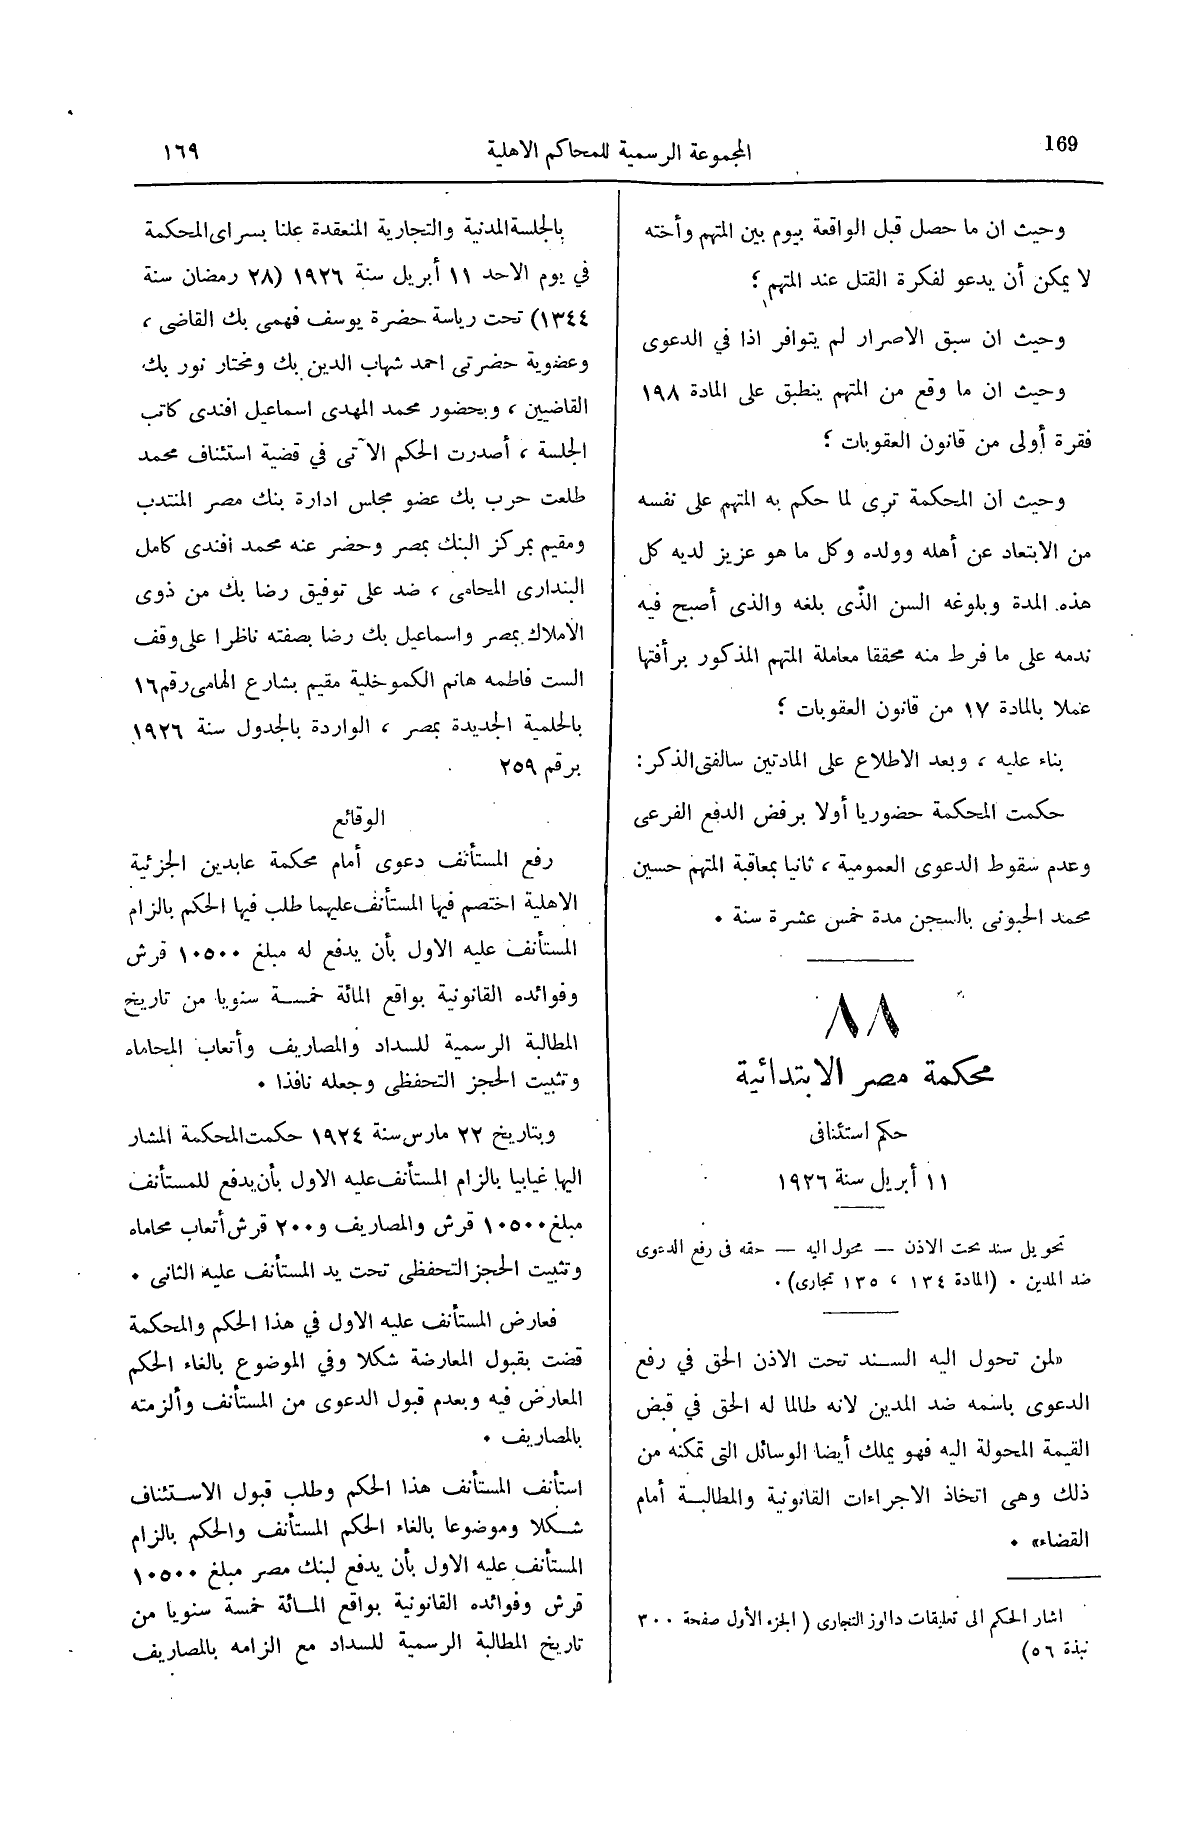 169
المجموعة الرسمية للمحاكم الاهلية
١٦٩
وحيث ان ما حصل قبل الواقعة بيوم بين المتهم وأخته
لا يمكن أن يدعو لفكرة القتل عند المتهم ؛
وحيث ان سبق الاصرار لم يتوافر اذا في الدعوى
وحيث ان ما وقع من المتهم ينطبق على المادة ١٩٨
فقرة أولى من قانون العقوبات ؛
وحيث ان المحكمة ترى لما حكم به المتهم على نفسه
من الابتعاد عن أهله وولده وكل ما هو عزيز لديه كل
هذه المدة وبلوغه السن الذى بلغه والذى أصبح فيه
ندمه على ما فرط منه محققا معاملة المتهم المذكور برأفتها
عملا بالمادة ١٧ من قانون العقوبات ؛
بناء عليه ، وبعد الاطلاع على المادتين سالفتى الذكر :
حكمت المحكمة حضوريا أولا برفض الدفع الفرعى
وعدم سقوط الدعوى العمومية ، ثانيا بمعاقبة المتهم حسين
محمد الحبونى بالسجن مدة خمس عشرة سنة .
٨٨
محكمة مصر الابتدائية
حكم استئنافى
١١ أبريل سنة ١٩٢٦
تحويل سند تحت الاذن — محول اليه — حقه فى رفع الدعوى
ضد المدين . (المادة ١٣٤ ، ١٣٥ تجارى) .
«لمن تحول اليه السند تحت الاذن الحق في رفع
الدعوى باسمه ضد المدين لانه طالما له الحق في قبض
القيمة المحولة اليه فهو يملك أيضا الوسائل التى تمكنه من
ذلك وهى اتخاذ الاجراءات القانونية والمطالبة أمام
القضاء» .
اشار الحكم الى تعليقات دالوز التجارى ( الجزء الأول صفحة ٣٠٠
نبذة ٥٦)
بالجلسة المدنية والتجارية المنعقدة علنا بسراى المحكمة
في يوم الاحد ١١ أبريل سنة ١٩٢٦ (٢٨ رمضان سنة
١٣٤٤) تحت رياسة حضرة يوسف فهمى بك القاضى ،
وعضوية حضرتى احمد شهاب الدين بك ومختار نور بك
القاضيين ، وبحضور محمد المهدى اسماعيل افندى كاتب
الجلسة ، أصدرت الحكم الآتى في قضية استئناف محمد
طلعت حرب بك عضو مجلس ادارة بنك مصر المنتدب
ومقيم بمركز البنك بمصر وحضر عنه محمد افندى كامل
البندارى المحامى ، ضد على توفيق رضا بك من ذوى
الاملاك بمصر واسماعيل بك رضا بصفته ناظرا على وقف
الست فاطمه هانم الكموخلية مقيم بشارع الهامى رقم ١٦
بالحلمية الجديدة بمصر ، الواردة بالجدول سنة ١٩٢٦
برقم ٢٥٩
الوقائع
رفع المستأنف دعوى أمام محكمة عابدين الجزئية
الاهلية اختصم فيها المستأنف عليهما طلب فيها الحكم بالزام
المستأنف عليه الاول بأن يدفع له مبلغ ١٠٥٠٠ قرش
وفوائده القانونية بواقع المائة خمسة سنويا من تاريخ
المطالبة الرسمية للسداد والمصاريف وأتعاب المحاماه
وتثبيت الحجز التحفظى وجعله نافذا .
وبتاريخ ٢٢ مارس سنة ١٩٢٤ حكمت المحكمة المشار
اليها غيابيا بالزام المستأنف عليه الاول بأن يدفع للمستأنف
مبلغ ١٠٥٠٠ قرش والمصاريف و٢٠٠ قرش أتعاب محاماه
وتثبيت الحجز التحفظى تحت يد المستأنف عليه الثانى .
فعارض المستأنف عليه الاول في هذا الحكم والمحكمة
قضت بقبول المعارضة شكلا وفي الموضوع بالغاء الحكم
المعارض فيه وبعدم قبول الدعوى من المستأنف وألزمته
بالمصاريف .
استأنف المستأنف هذا الحكم وطلب قبول الاستئناف
شكلا وموضوعا بالغاء الحكم المستأنف والحكم بالزام
المستأنف عليه الاول بأن يدفع لبنك مصر مبلغ ١٠٥٠٠
قرش وفوائده القانونية بواقع المائة خمسة سنويا من
تاريخ المطالبة الرسمية للسداد مع الزامه بالمصاريف